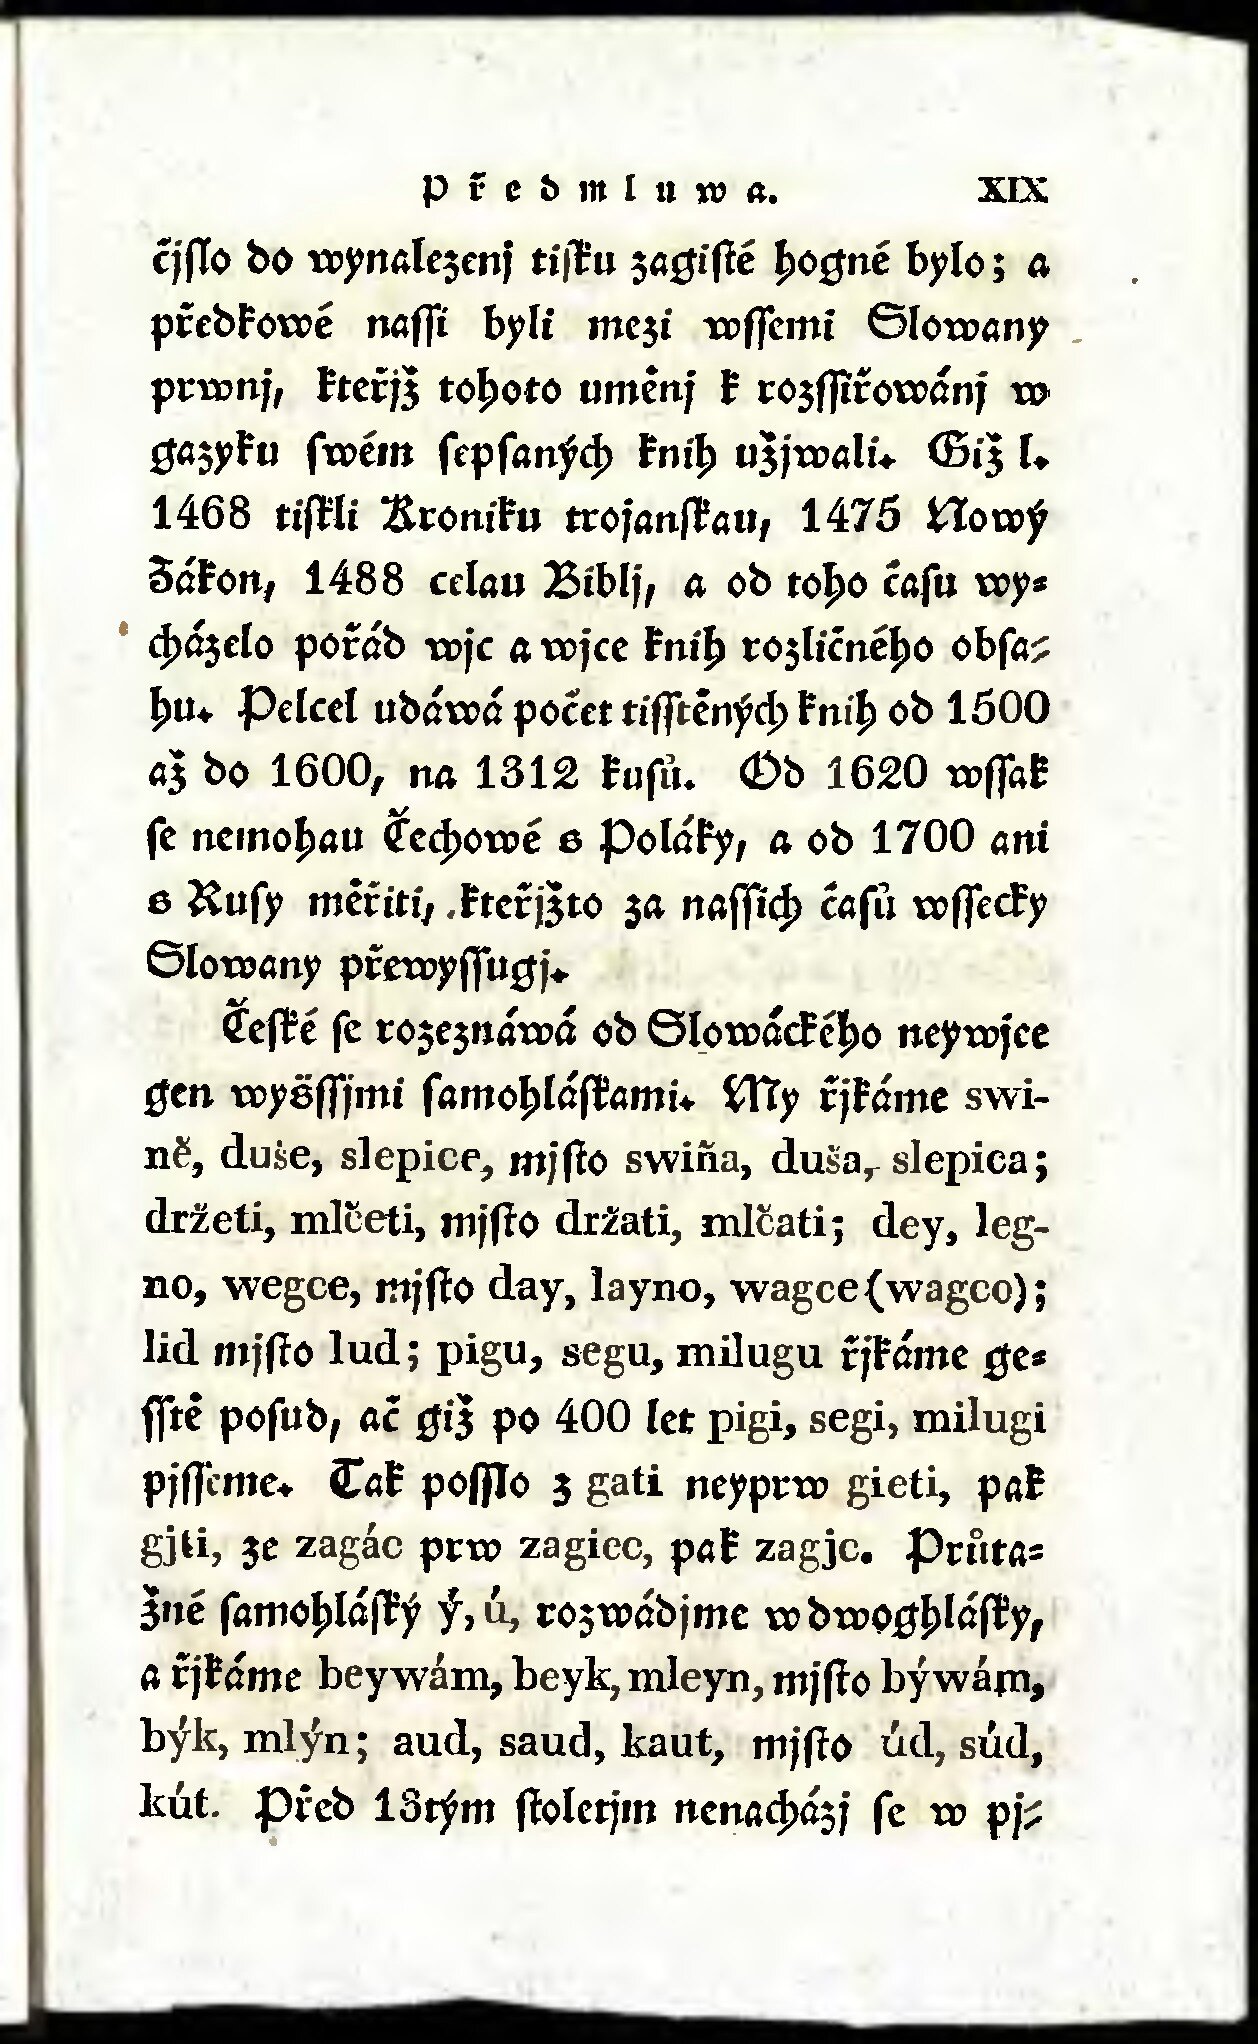 Předmluwa. XIX
čjslo do wynalezenj tisku zagisté hogné bylo; a
předkowé nassi byli mezi wssemi Slowany
prwnj, kteřjž tohoto uměnj k rozssiřowánj w
gazyku swém sepsaných knih užjwali. Giž l.
1468 tiskli Kroniku trojanskau, 1475 Nowý
Zákon, 1488 celau Biblj, a od toho času wy-
cházelo pořád wjc a wjce knih rozličného obsa-
hu. Pelcel udáwá počet tisstěných knih od 1500
až do 1600, na 1312 kusů. Od 1620 wssak
se nemohau Čechowé s Poláky, a od 1700 ani
s Rusy měřiti, kteřjžto za nassich časů wssecky
Slowany přewyssugj.
České se rozeznáwá od Slowáckého neywjce
gen wysssjmi samohláskami. My řjkáme swi-
ně, duše, slepice, mjsto swiňa, duša, slepica;
držeti, mlčeti, mjsto držati, mlčati; dey, leg-
no, wegce, mjsto day, layno, wagce (wagco);
lid mjsto lud; pigu, segu, milugu řjkáme ge-
sstě posud, ač giž po 400 let pigi, segi, milugi
pjsseme. Tak posslo z gati neyprw gieti, pak
gjti, ze zagác prw zagiec, pak zagjc. Průta-
žné samohláský ý, ú, rozwádjme w dwoghlásky,
a řjkáme beywám, beyk, mleyn, mjsto býwám,
býk, mlýn; aud, saud, kaut, mjsto úd, súd,
kút. Před 13tým stoletjm nenacházj se w pj-